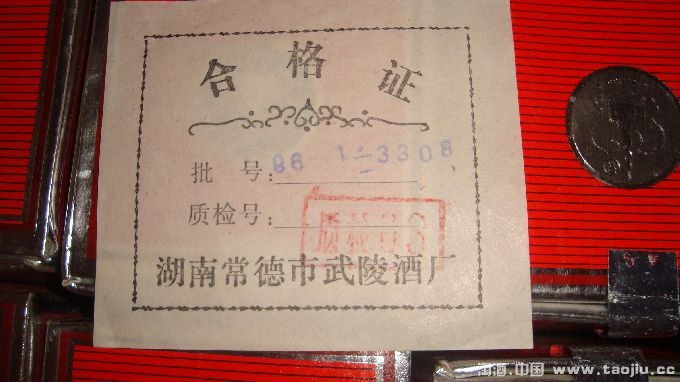 合格证
批号：96 1-3308
质检号：
质检号3
湖南常德市武陵酒厂
淘酒.中国 www.taojiu.cc